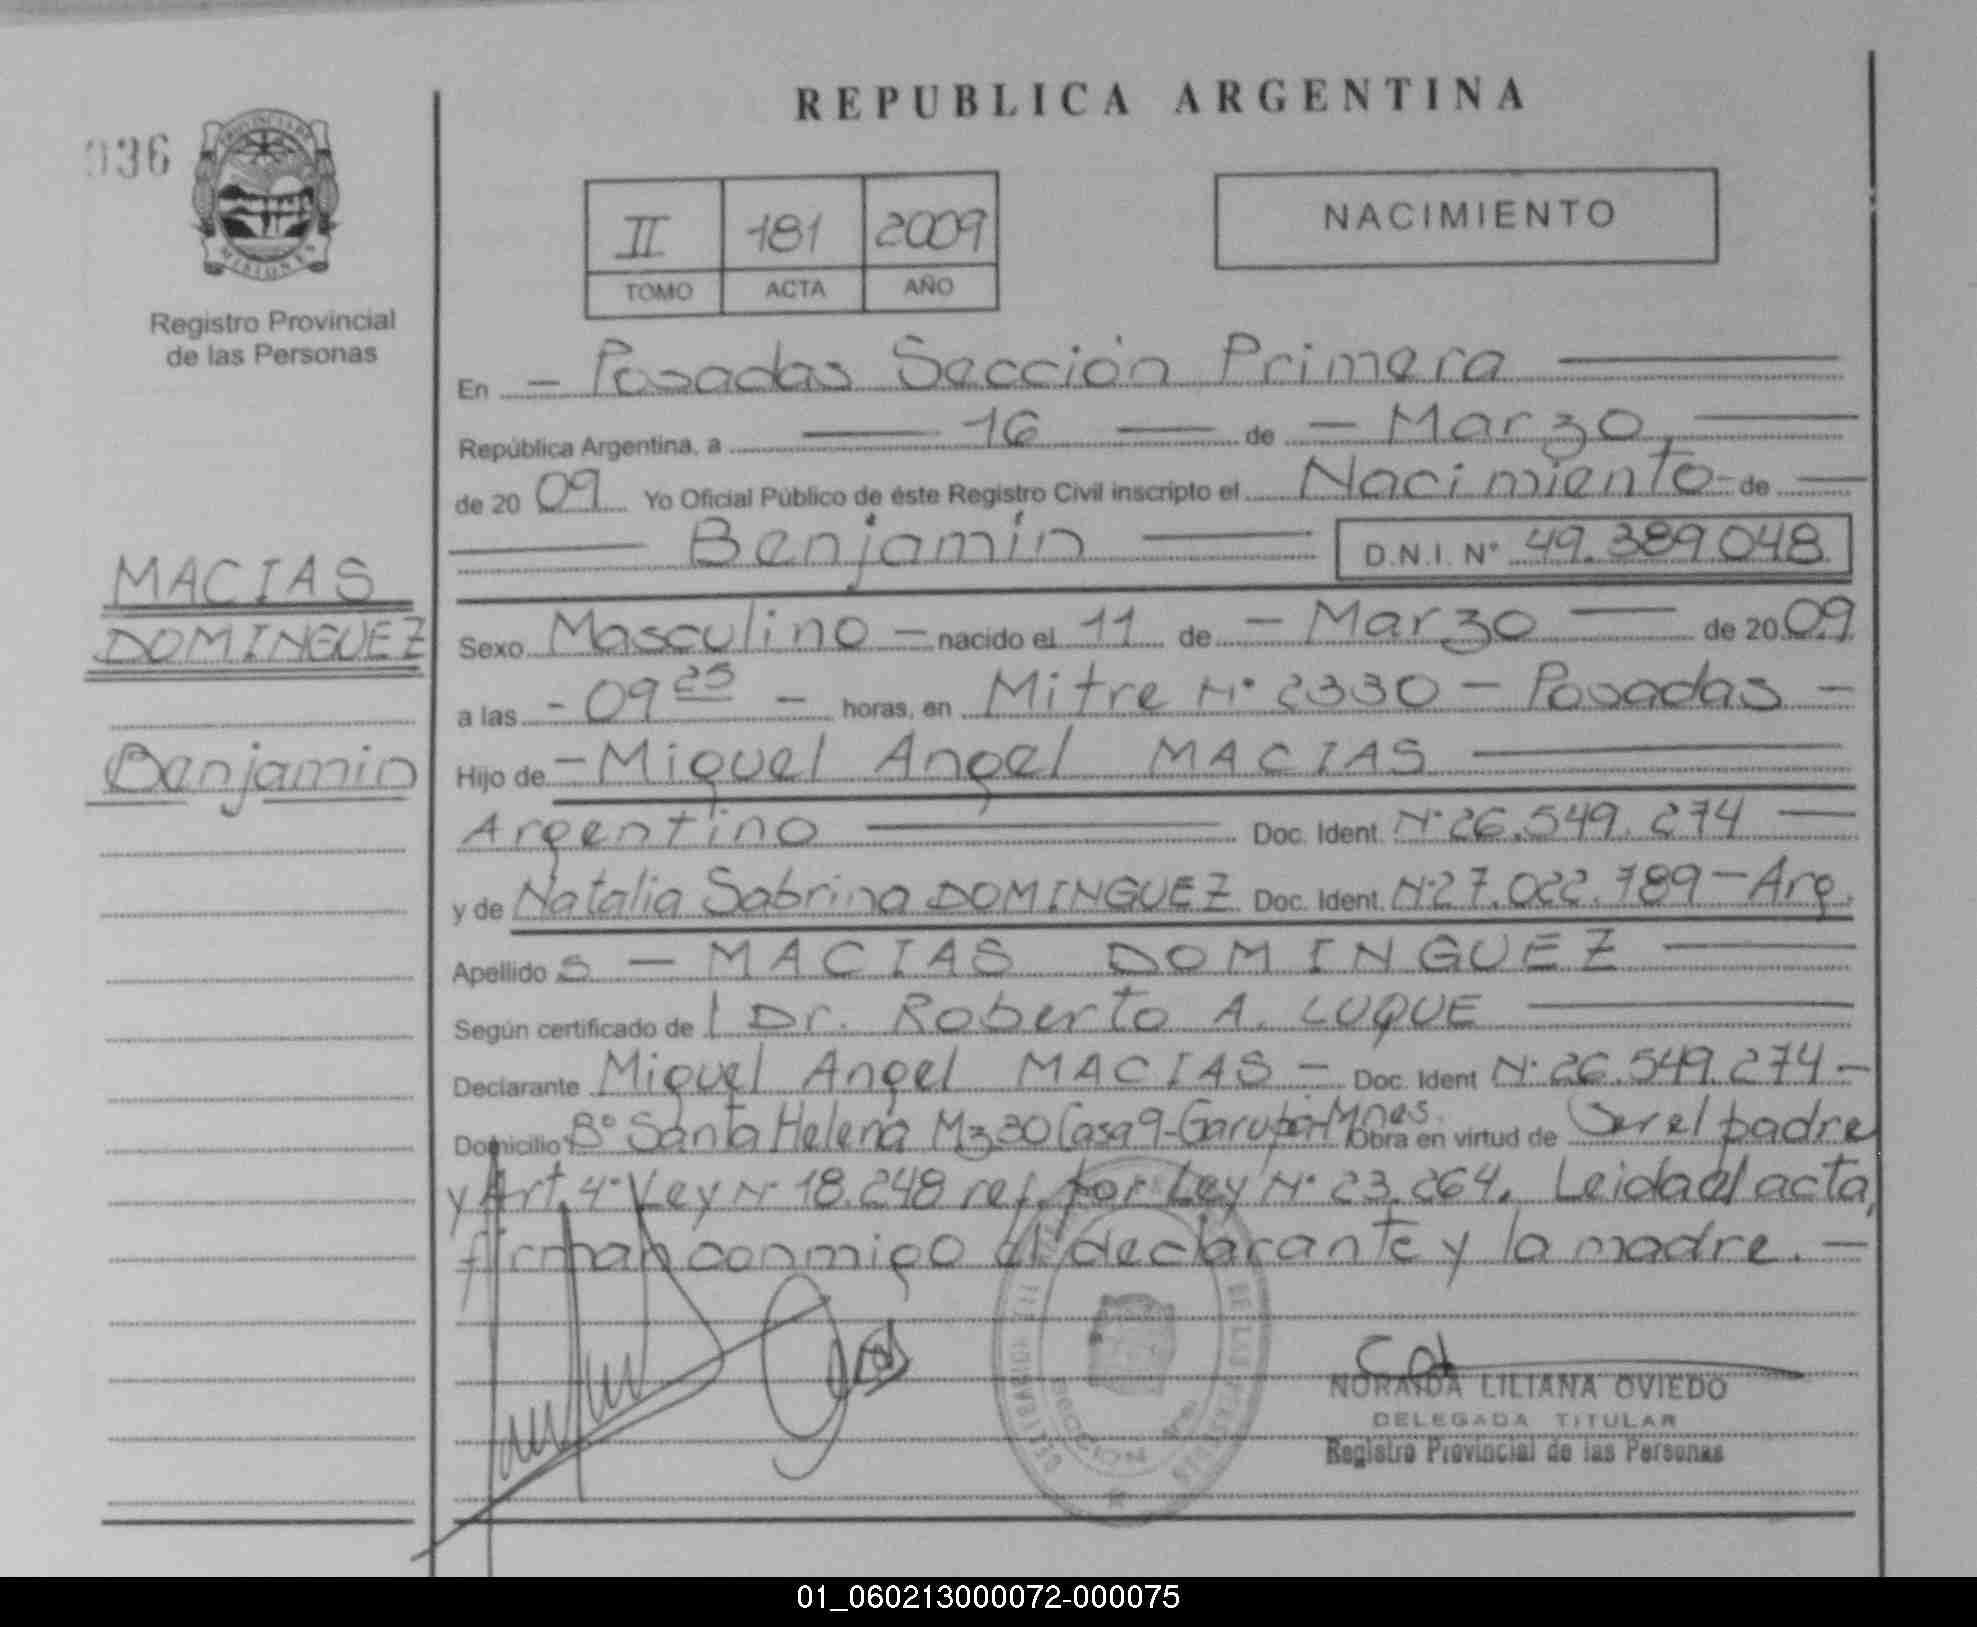 REPUBLICA ARGENTINA
036
PROVINCIA DE
MISIONES
Registro Provincial
de las Personas
II 181 2009
TOMO ACTA AÑO
NACIMIENTO
En - Posadas Sección Primera
República Argentina, a 16 de - Marzo,
de 2009 Yo Oficial Público de éste Registro Civil inscripto el Nacimiento - de
Benjamín D.N.I. N° 49.389048
MACIAS
DOMINGUEZ
Benjamin
Sexo Masculino - nacido el 11 de - Marzo de 2009
a las - 09 25 - horas, en Mitre N° 2330 - Posadas -
Hijo de - Miguel Angel MACIAS
Argentino Doc. Ident. N° 26.549.274
y de Natalia Sabrina DOMINGUEZ Doc. Ident. N° 27.022.789 - Arg.
Apellido s - MACIAS DOMINGUEZ
Según certificado de l Dr. Roberto A. LUQUE
Declarante Miguel Angel MACIAS - Doc. Ident N° 26.549.274 -
Domicilio B° Santa Helena Mz 30 Casa 9 - Garupá - Mnes. Obra en virtud de Ser el padre
y Art. 4° Ley N° 18.248 ref. por Ley N° 23.264. Leida el acta,
firman conmigo el declarante y la madre. -
NORAIDA LILIANA OVIEDO
DELEGADA TITULAR
Registro Provincial de las Personas
01_060213000072-000075